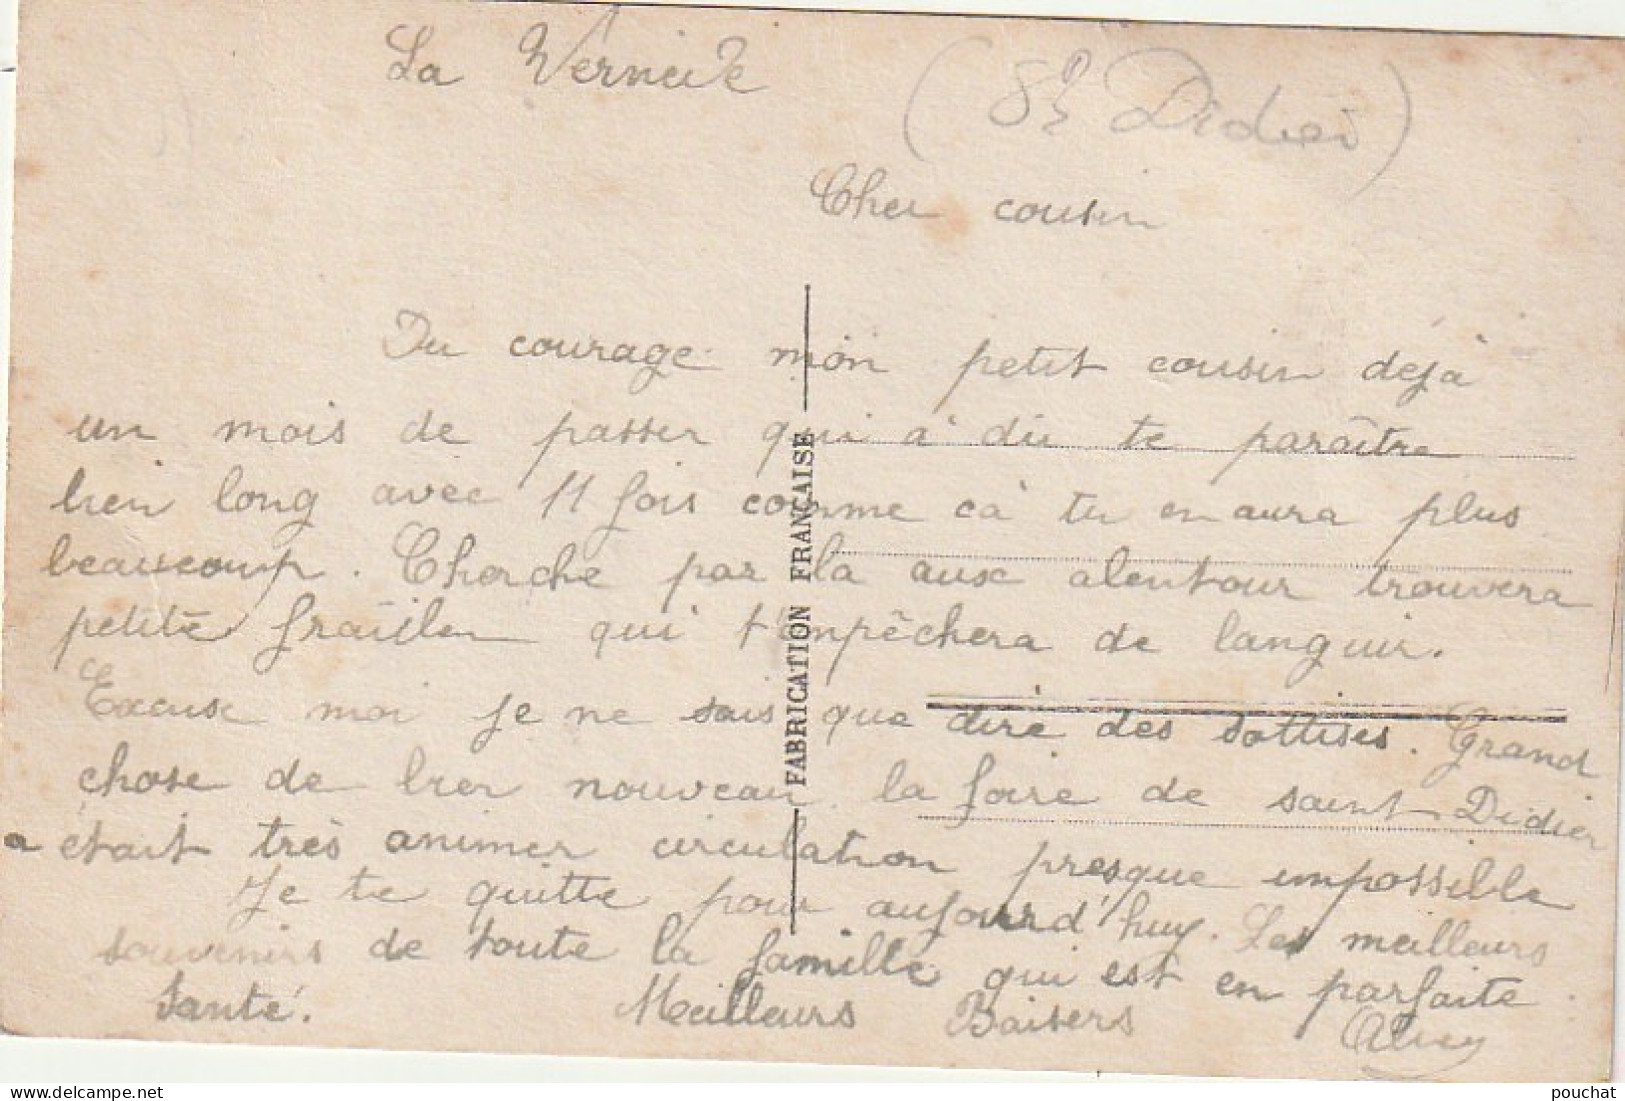 La
(St Didier)
Cher cousin
Du courage mon petit cousin déjà
un mois de passer qui a dû te paraître
bien long avec 11 fois comme cà tu en aura plus
beaucoup. Cherche par la aux alentour trouvera
petite qui t'empêchera de languir.
Excuse moi je ne sais que dire des sottises. Grand
chose de bien nouveau la foire de saint Didier
a était très animer circulation presque impossible
Je te quitte pour aujourd'huy. Les meilleurs
souvenirs de toute la famille qui est en parfaite
santé. Meilleurs Baisers
FABRICATION FRANÇAISE
pouchat